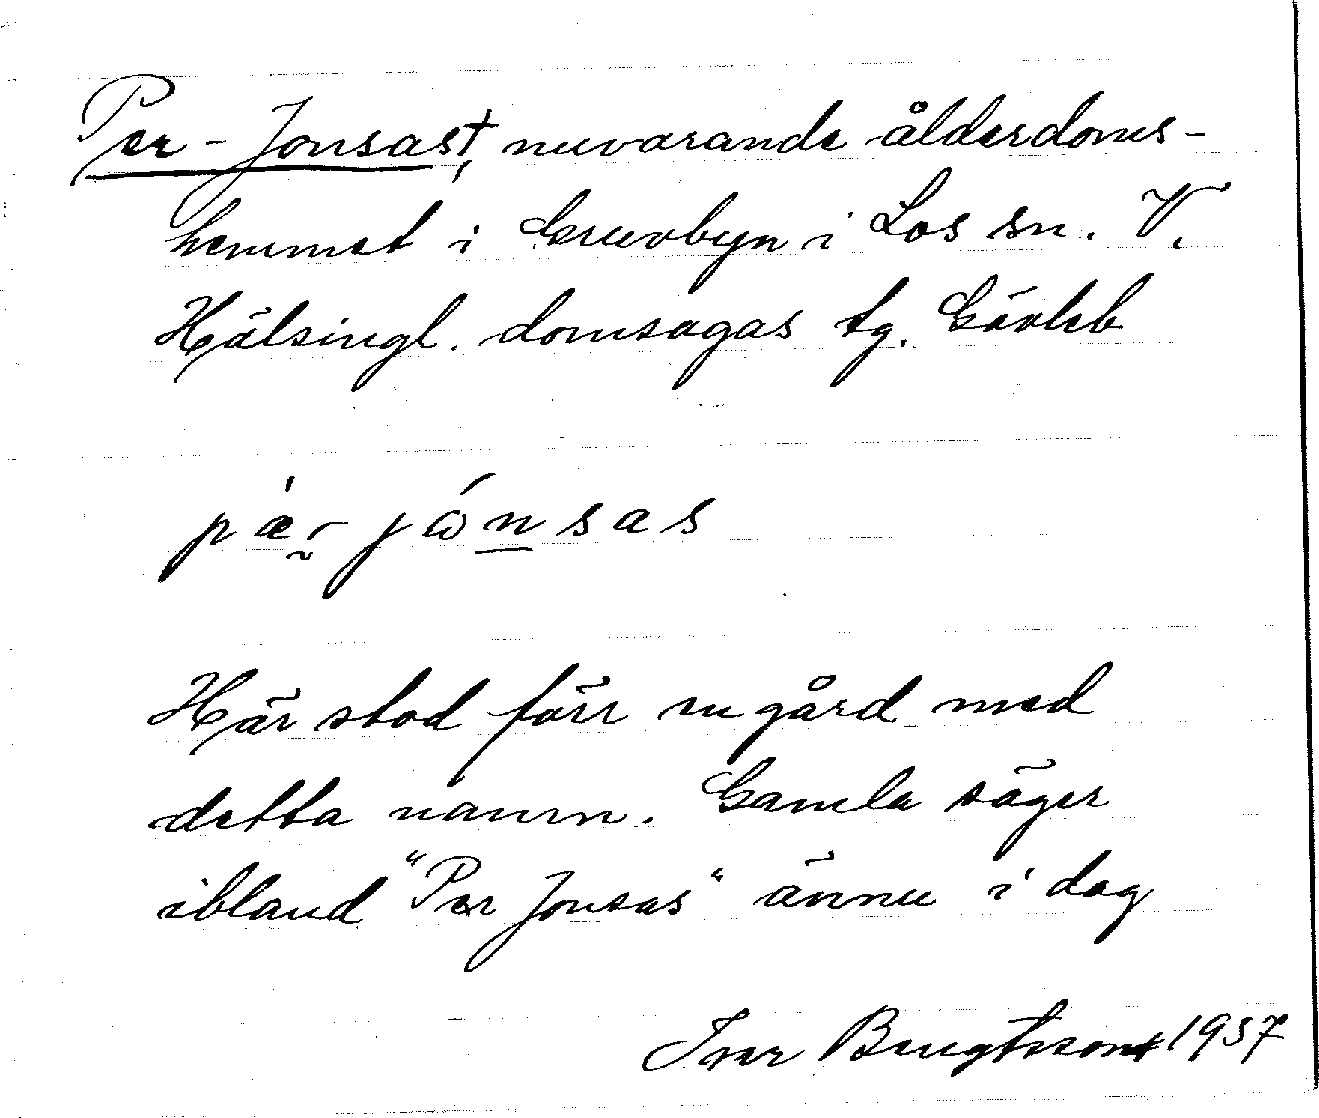 Per-Jonsas†, nuvarande ålderdoms-
hemmet i Gruvbyn i Los sn. V.
Hälsingl. domsagas tg. Gävleb
pæ̀r jó̱nsas
Här stod förr en gård med
detta namn. Gamla säger
ibland "Per Jonsas" ännu i dag
Ivar Bengtsson 1957